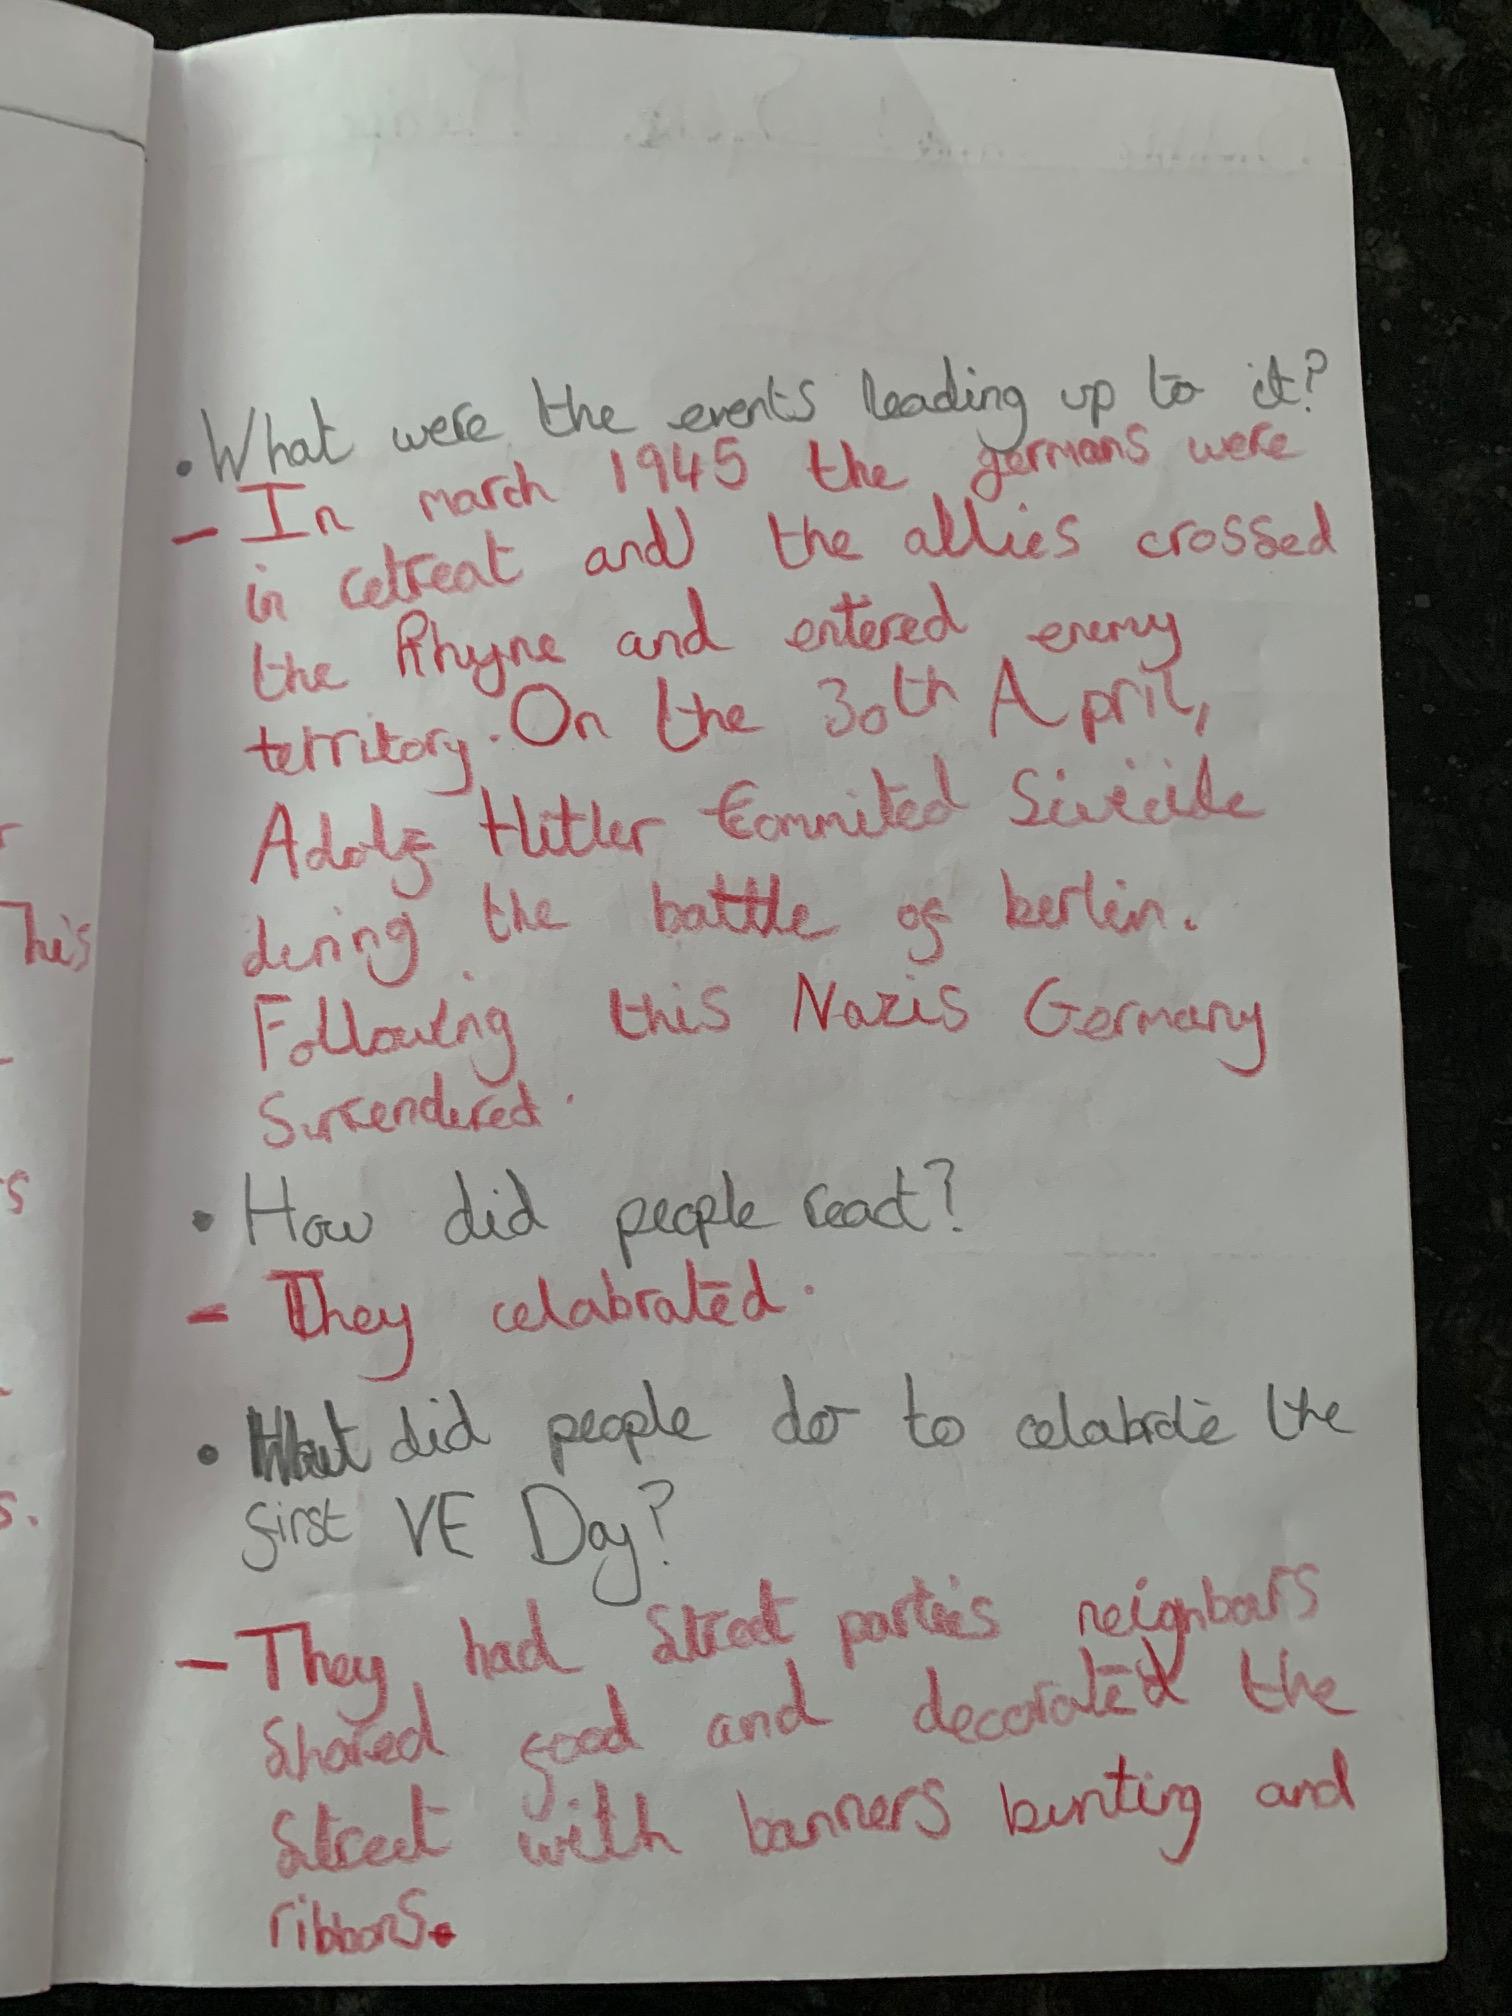 • What were the events leading up to it?
- In march 1945 the germans were
in retreat and the allies crossed
the Rhyne and entered enemy
territory. On the 30th April,
Adolf Hitler Commited
during the battle of berlin.
Following this Nazis Germany
Surrendered.
• How did people react?
- They celabrated.
• What did people do to celabrate the
first VE Day?
- They had Street parties neighbours
Shared food and decorated the
Street with banners bunting and
ribbons.
his
s
s.